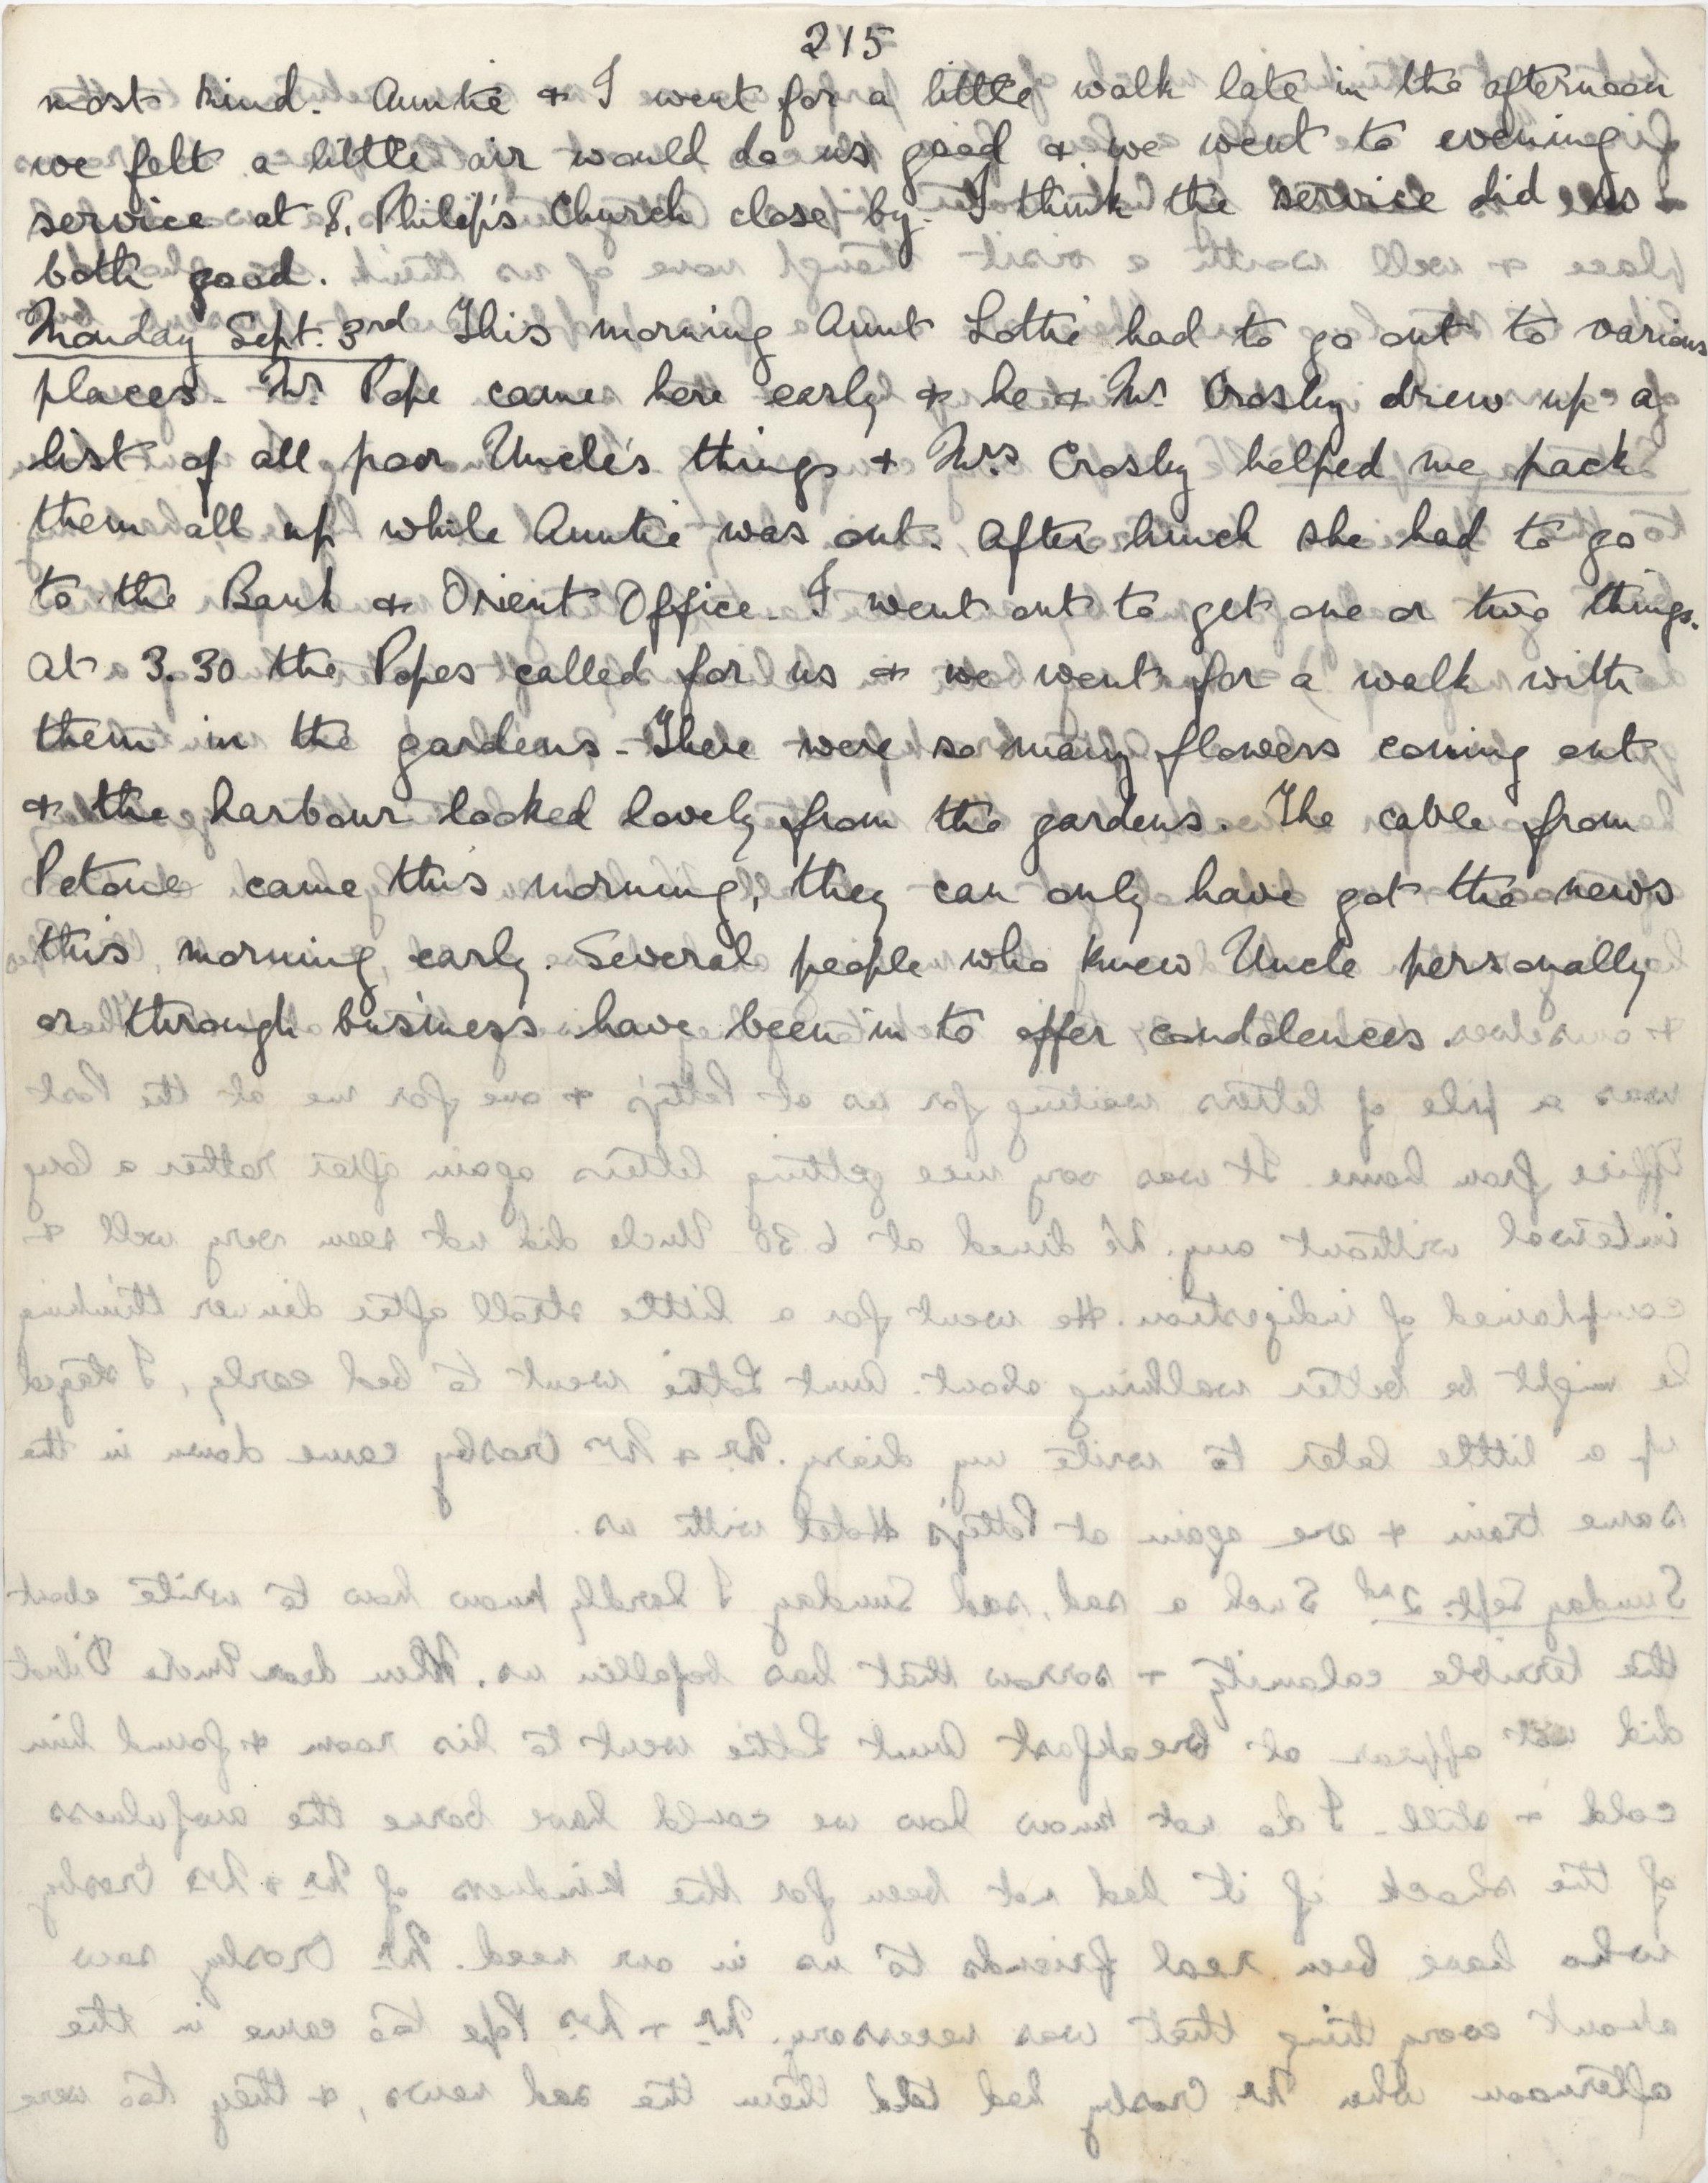 215
most kind. Auntie & I went for a little walk late in the afternoon
we felt a little air would do us good & we went to evening
service at S. Philip's Church close by. I think the service did us
both good.
Monday Sept. 3rd This morning Aunt Lottie had to go out to various
places. Mr. Pope came here early & he & Mr. Crosby drew up a
list of all poor Uncle's things & Mrs Crosby helped me pack
them all up while Auntie was out. After lunch she had to go
to the Bank & Orient Office. I went out to get one or two things.
At 3.30 the Popes called for us & we went for a walk with
them in the gardens. There were so many flowers coming out
& the harbour looked lovely from the gardens. The cable from
Petone came this morning, they can only have got the news
this morning early. Several people who knew Uncle personally
or through business have been in to offer condolences.